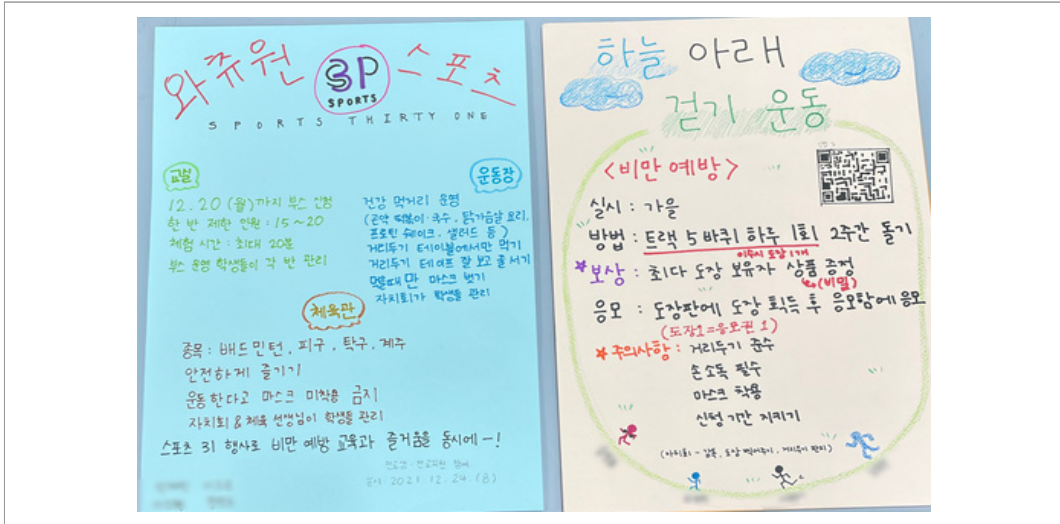 와쮸원 3P 스포츠
SPORTS
SPORTS THIRTY ONE
교실
12.20 (월)까지 부스 신청
한 반 제한 인원 : 15~20
체험 시간 : 최대 20분
부스 운영 학생들이 각 반 관리
운동장
건강 먹거리 운영
(곤약 떡볶이·국수, 닭가슴살 요리,
프로틴 쉐이크, 샐러드 등)
거리두기 테이블에서만 먹기
거리두기 테이프 잘 보고 줄 서기
먹을때만 마스크 벗기
자치회가 학생들 관리
체육관
종목 : 배드민턴, 피구, 탁구, 계주
안전하게 즐기기
운동한다고 마스크 미착용 금지
자치회 & 체육 선생님이 학생들 관리
스포츠 31 행사로 비만 예방 교육과 즐거움을 동시에-!
2021.12.24.(금)
하늘 아래
걷기 운동
<비만 예방>
실시 : 가을
방법 : 트랙 5바퀴 하루 1회 2주간 돌기
이수시 도장 1개
★보상 : 최다 도장 보유자 상품 증정
(비밀)
응모 : 도장판에 도장 획득 후 응모함에 응모
(도장1=응모권 1)
★주의사항 : 거리두기 준수
손소독 필수
마스크 착용
신청기간 지키기